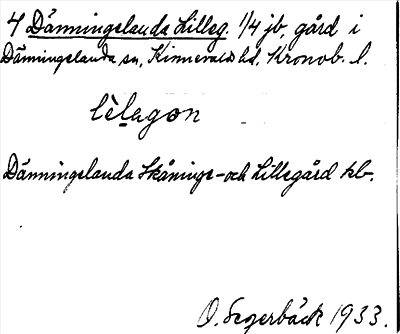 4 Dänningelanda Lilleg. 1/4 jb, gård i
Dänningelanda sn, Kinnevalds hd, Kronob. l.
lèlagon
Dänningelanda Skånings- och Lillegård kb.
O. Segerbäck 1933.